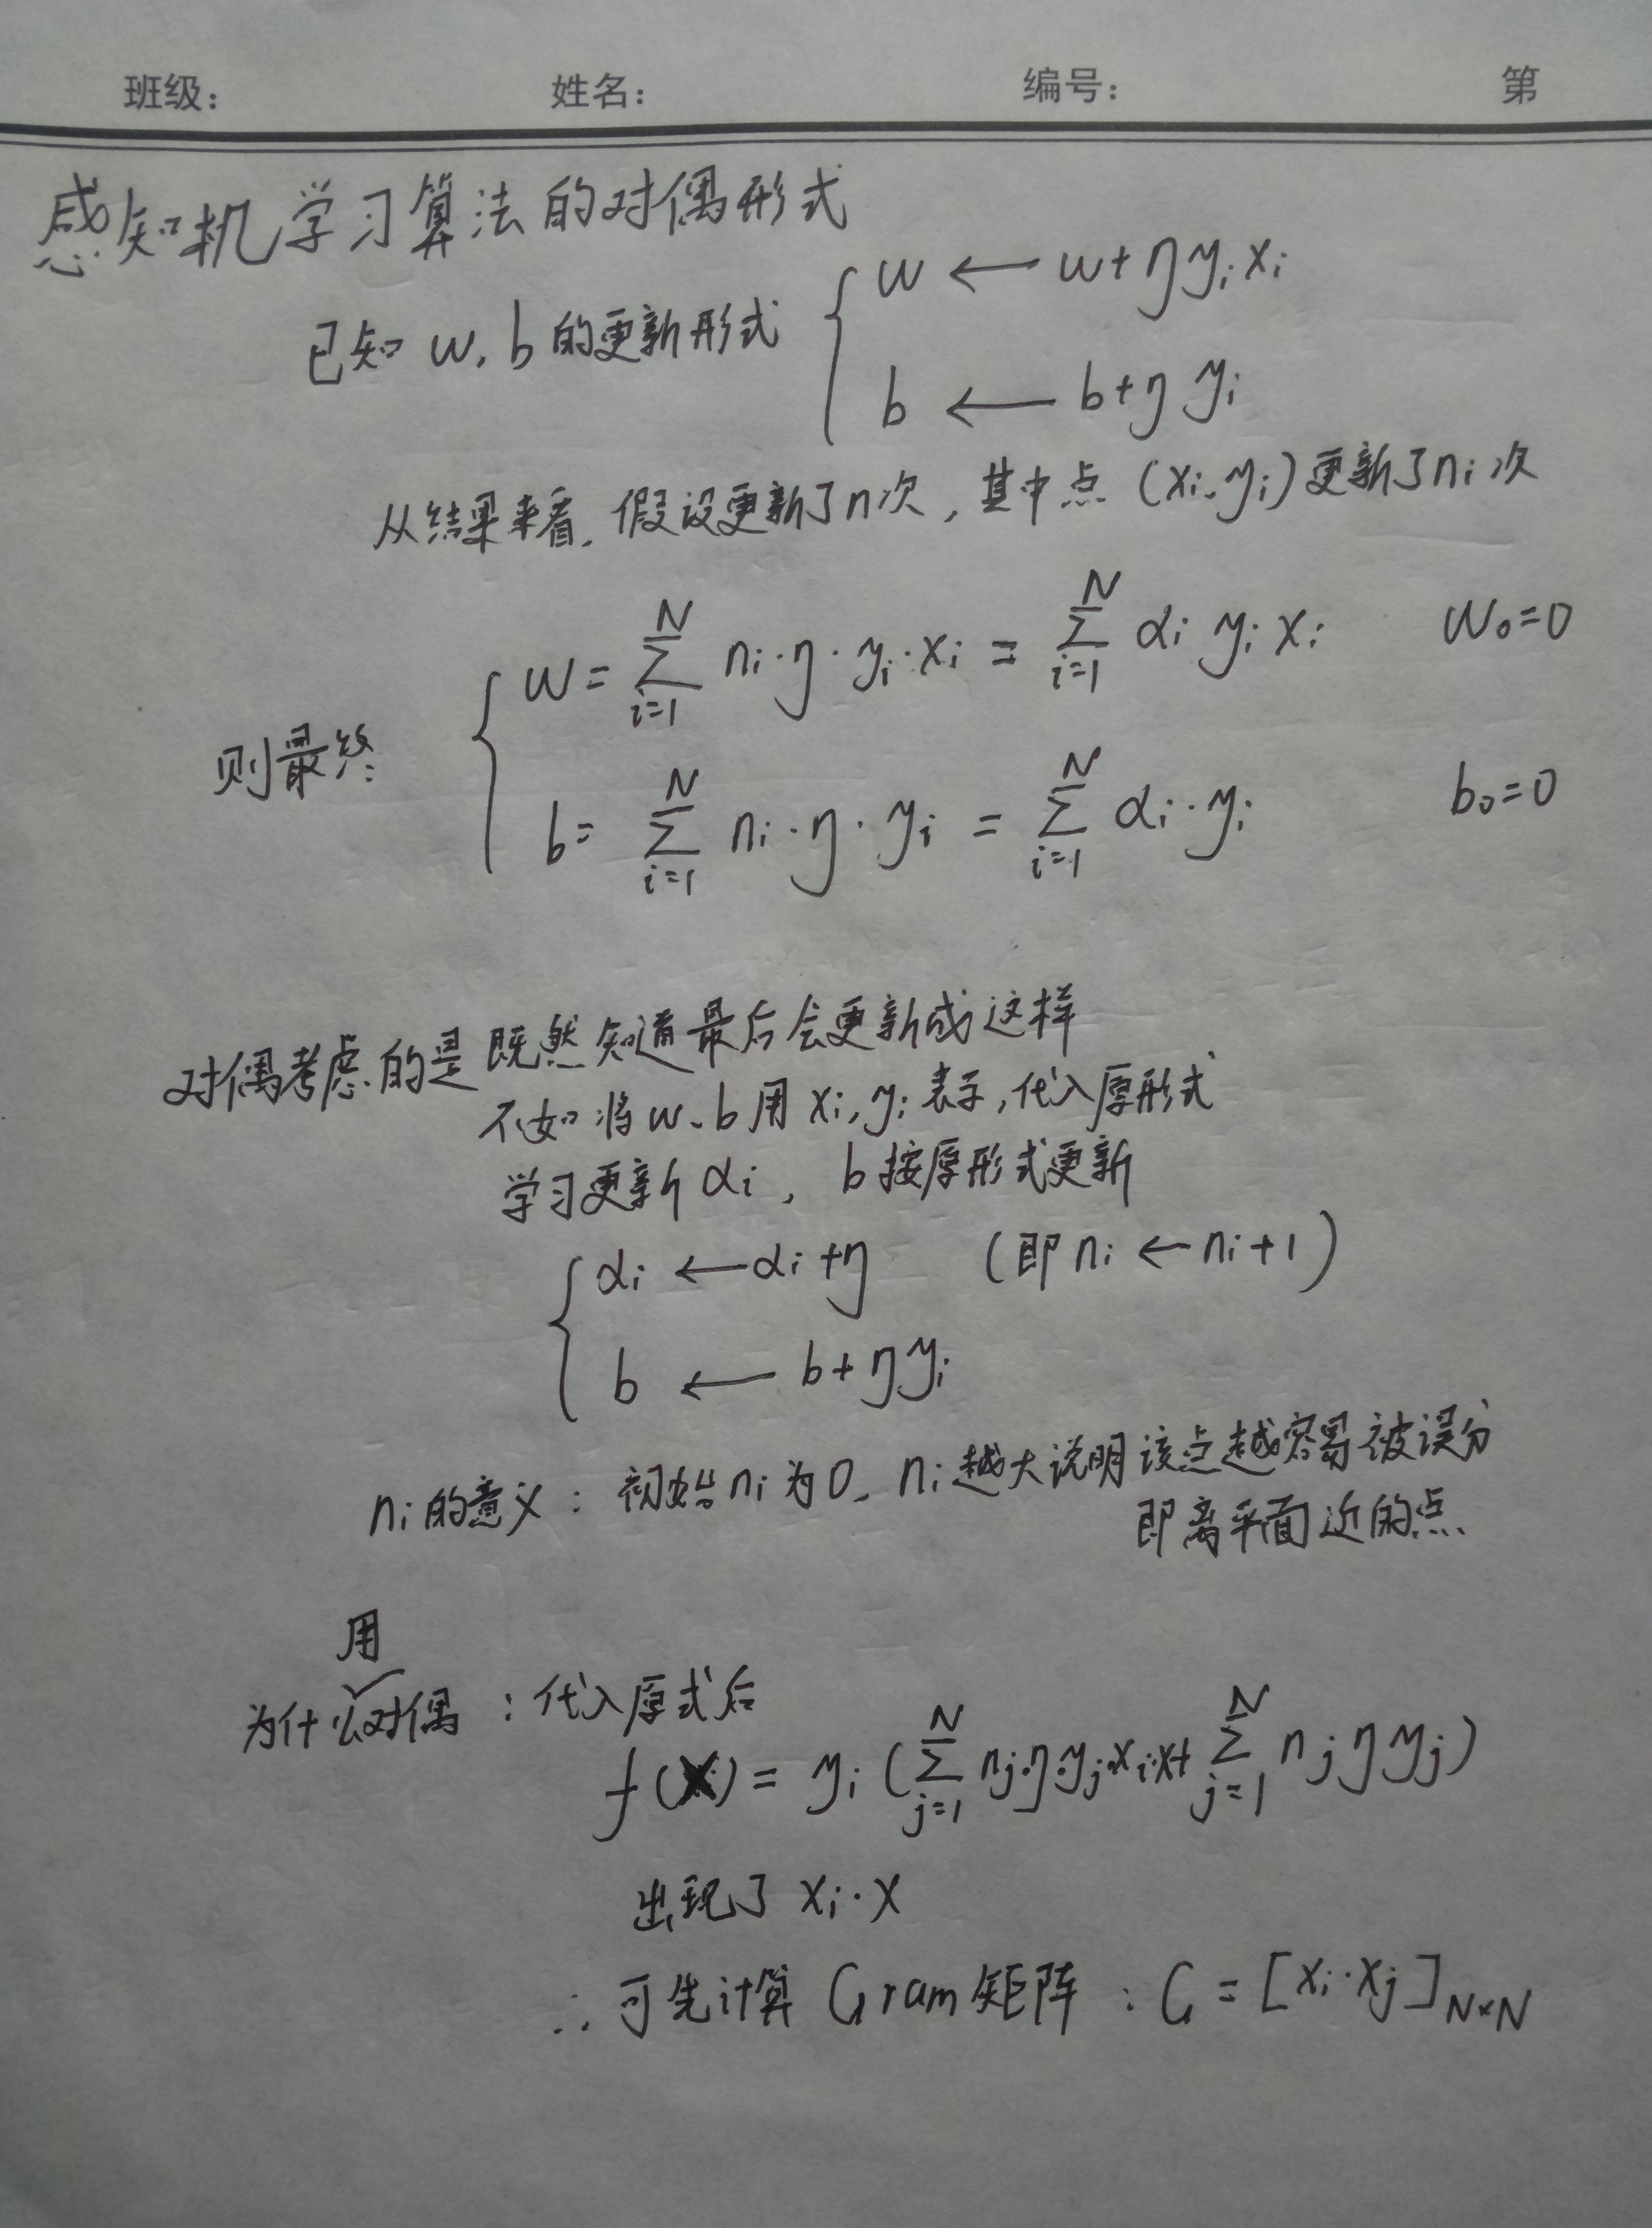 班级： 姓名： 编号： 第
感知机学习算法的对偶形式
已知 w、b的更新形式 { w ← w+ηyᵢxᵢ
b ← b+ηyᵢ
从结果来看，假设更新了n次，其中点（xᵢ、yᵢ）更新了nᵢ次
则最终： { w= ∑_{i=1}^{N} nᵢ·η·yᵢ·xᵢ = ∑_{i=1}^{N} αᵢ yᵢ xᵢ w₀=0
b= ∑_{i=1}^{N} nᵢ·η·yᵢ = ∑_{i=1}^{N} αᵢ·yᵢ b₀=0
对偶考虑的是既然知道最后会更新成这样
不如将w、b用xᵢ,yᵢ表示,代入原形式
学习更新αᵢ， b按原形式更新
{ αᵢ ← αᵢ+η （即nᵢ ← nᵢ+1）
b ← b+ηyᵢ
nᵢ的意义：初始nᵢ为0、nᵢ越大说明该点越容易被误分
即离平面近的点、
为什么用对偶：代入原式后
f(x)= yᵢ (∑_{j=1}^{N} nⱼ·η·yⱼ·xᵢ·x+ ∑_{j=1}^{N} nⱼηyⱼ)
出现了 xᵢ·x
∴可先计算 Gram矩阵：G = [xᵢ·xⱼ]_{N×N}